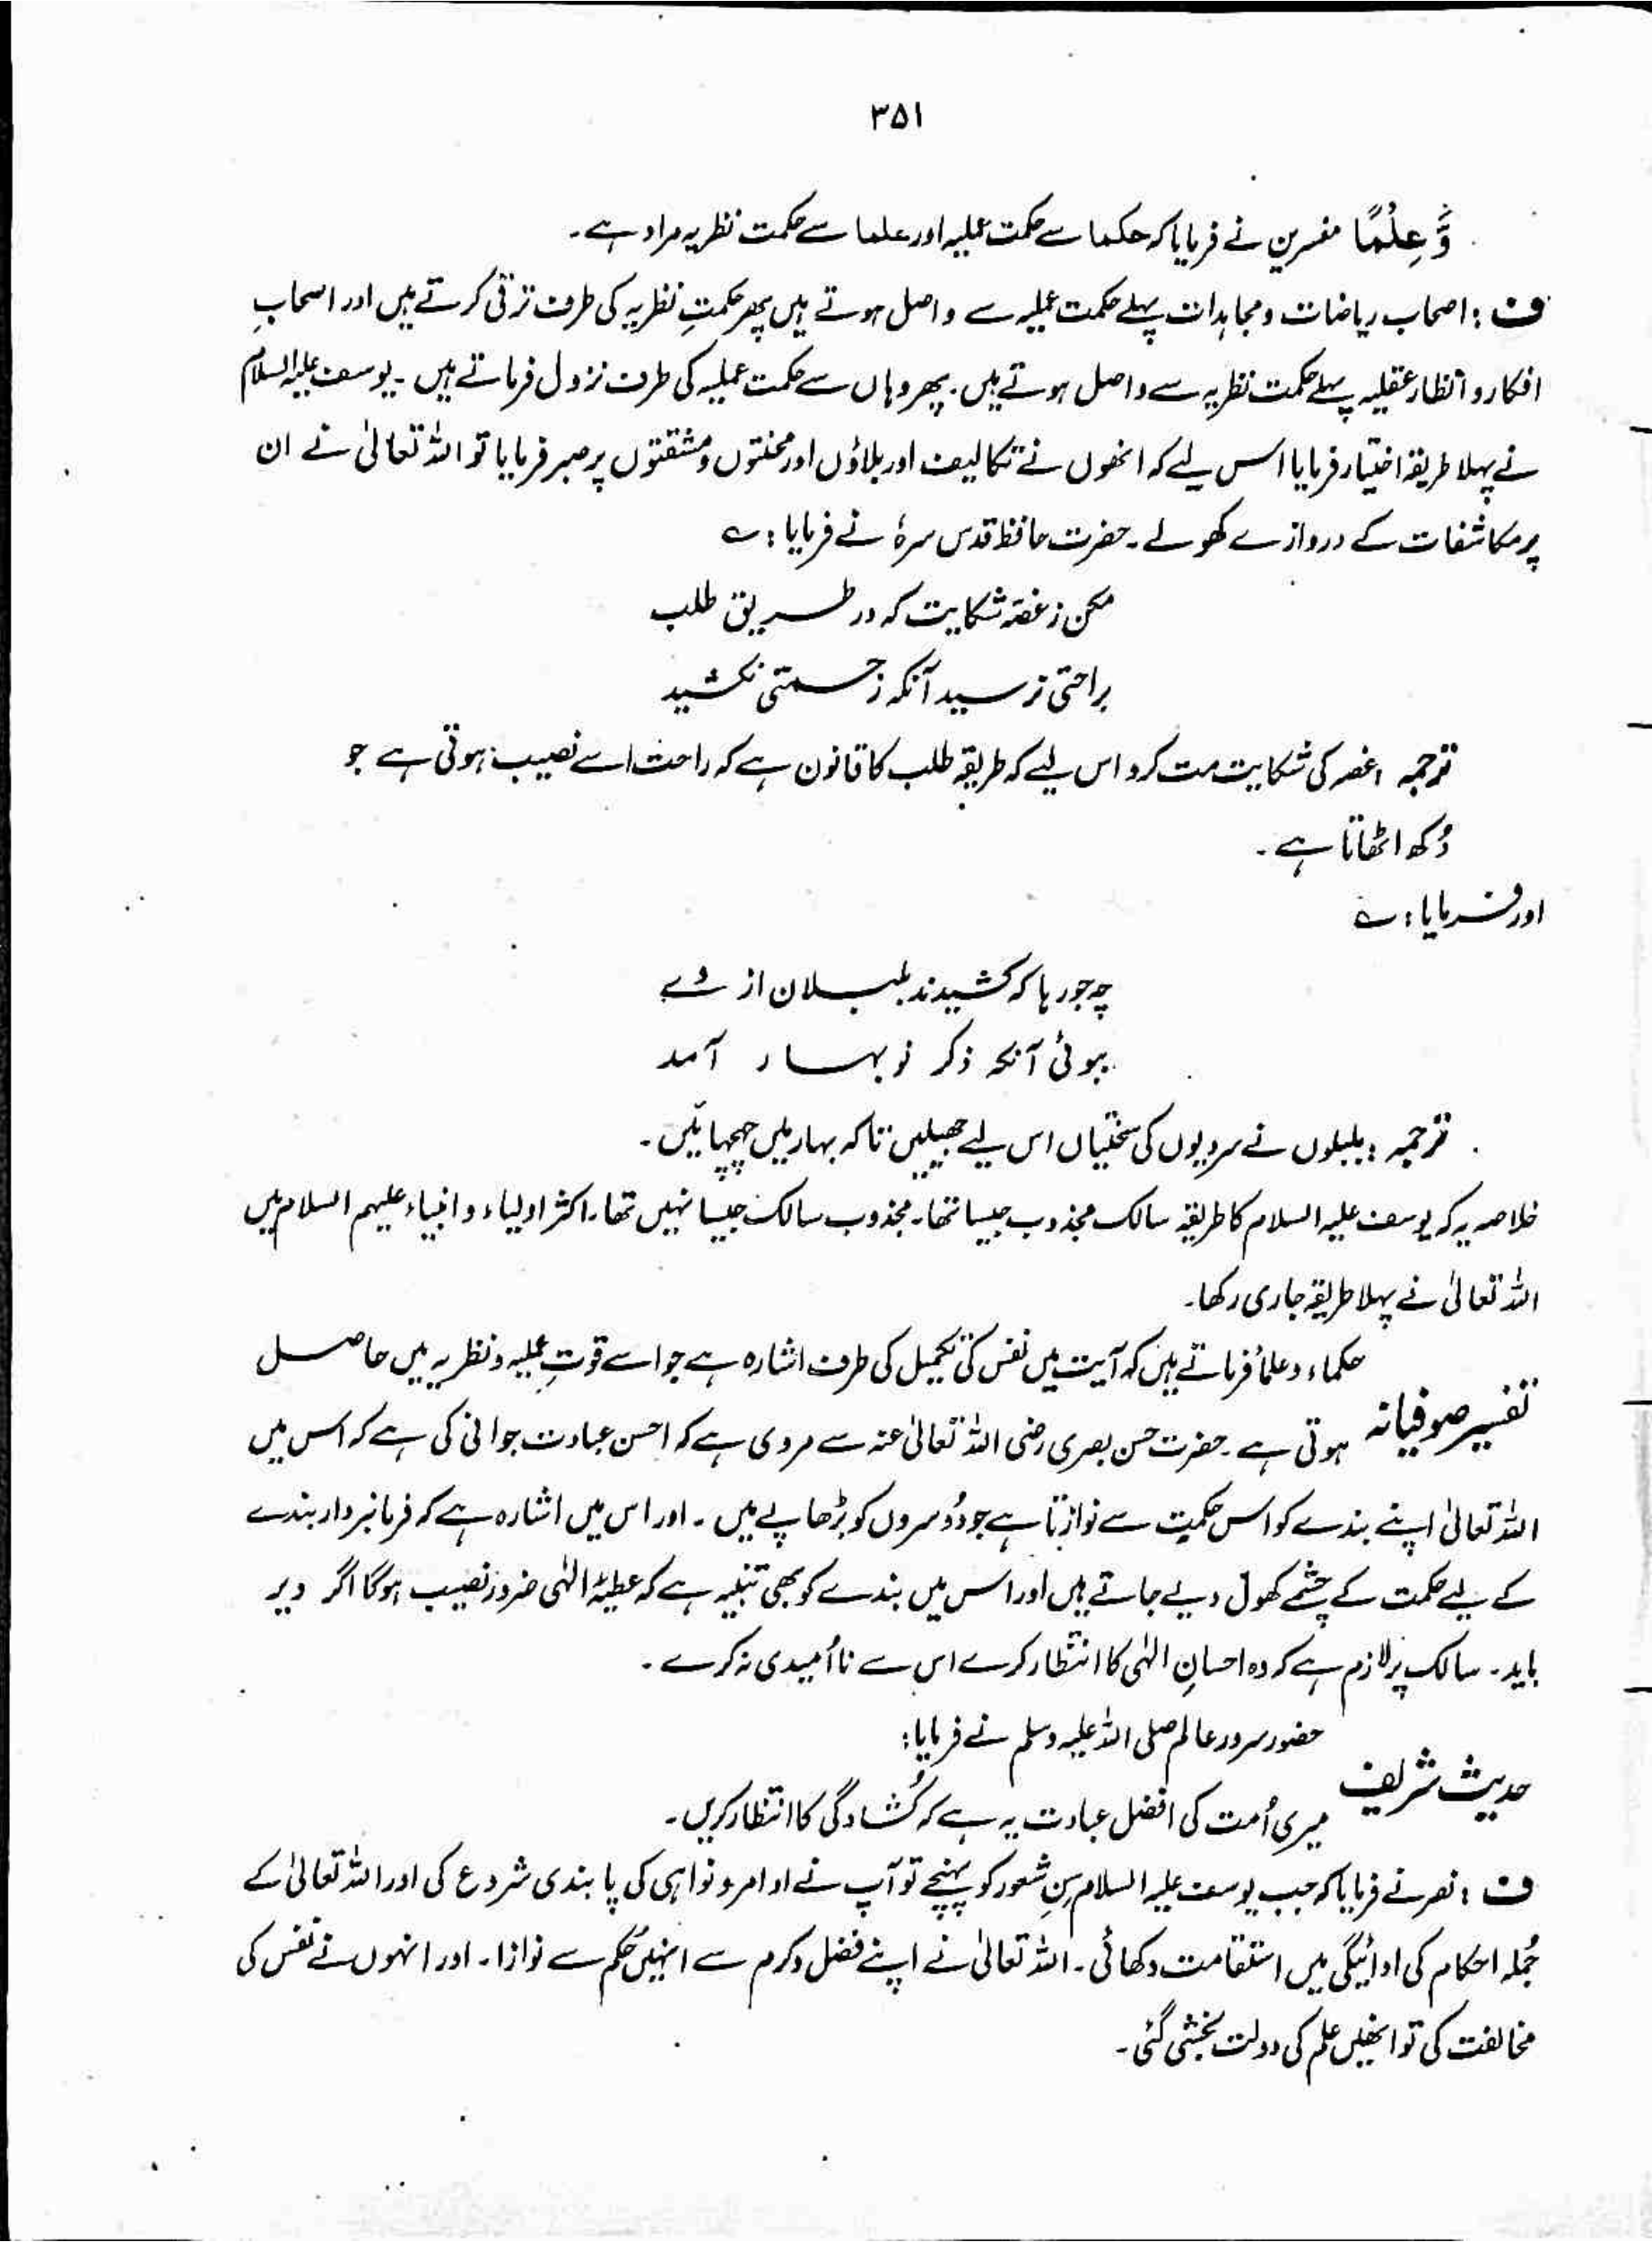 ۳۵۱
وَّ عِلْمًا مفسرین نے فرمایا کہ حکما سے حکمت عملیہ اور علما سے حکمت نظریہ مراد ہے۔
ف : اصحاب ریاضات و مجاہدات پہلے حکمت عملیہ سے واصل ہوتے ہیں پھر حکمتِ نظریہ کی طرف ترقی کرتے ہیں اور اصحابِ
افکار و انظار عقلیہ پہلے حکمت نظریہ سے واصل ہوتے ہیں۔ پھر وہاں سے حکمت عملیہ کی طرف نزول فرماتے ہیں۔ یوسف علیہ السلام
نے پہلا طریقہ اختیار فرمایا اس لیے کہ انھوں نے تکالیف اور بلاؤں اور محنتوں و مشقتوں پر صبر فرمایا تو اللہ تعالیٰ نے ان
پر مکاشفات کے دروازے کھولے۔ حضرت حافظ قدس سرہٗ نے فرمایا : ے
مکن ز غصہ شکایت کہ در طریق طلب
براحتی نرسید آنکہ زحمتی نکشید
ترجمہ : غصہ کی شکایت مت کرو اس لیے کہ طریقہ طلب کا قانون ہے کہ راحت اسے نصیب ہوتی ہے جو
دُکھ اٹھاتا ہے۔
اور فرمایا : ے
چہ جورہا کہ کشیدند بلبلان از دے
ببوئی آنکہ ذکر نوبہار آمد
ترجمہ : بلبلوں نے سردیوں کی سختیاں اس لیے جھیلیں تاکہ بہار میں چہچہائیں۔
خلاصہ یہ کہ یوسف علیہ السلام کا طریقہ سالک مجذوب جیسا تھا۔ مجذوب سالک جیسا نہیں تھا۔ اکثر اولیاء و انبیاء علیہم السلام میں
اللہ تعالیٰ نے پہلا طریقہ جاری رکھا۔
حکماء و علماُ فرماتے ہیں کہ آیت میں نفس کی تکمیل کی طرف اشارہ ہے جو اسے قوتِ عملیہ و نظریہ میں حاصل
تفسیر صوفیانہ ہوتی ہے۔ حضرت حسن بصری رضی اللہ تعالیٰ عنہ سے مروی ہے کہ احسن عبادت جوانی کی ہے کہ اس میں
اللہ تعالیٰ اپنے بندے کو اس حکمیت سے نوازتا ہے جو دُوسروں کو بڑھاپے میں۔ اور اس میں اشارہ ہے کہ فرمانبردار بندے
کے لیے حکمت کے چشمے کھول دیے جاتے ہیں اور اس میں بندے کو بھی تنبیہ ہے کہ عطیۂ الٰہی ضرور نصیب ہوگا اگر دیر
باید۔ سالک پر لازم ہے کہ وہ احسانِ الٰہی کا انتظار کرے اس سے نااُمیدی نہ کرے۔
حضور سرور عالم صلی اللہ علیہ وسلم نے فرمایا :
حدیث شریف میری اُمت کی افضل عبادت یہ ہے کہ کُشادگی کا انتظار کریں۔
ف : نصر نے فرمایا کہ جب یوسف علیہ السلام سِنِ شعور کو پہنچے تو آپ نے اوامر و نواہی کی پابندی شروع کی اور اللہ تعالیٰ کے
جُملہ احکام کی ادائیگی میں استقامت دکھائی۔ اللہ تعالیٰ نے اپنے فضل و کرم سے انہیں حُکم سے نوازا۔ اور انہوں نے نفس کی
مخالفت کی تو انھیں علم کی دولت بخشی گئی۔